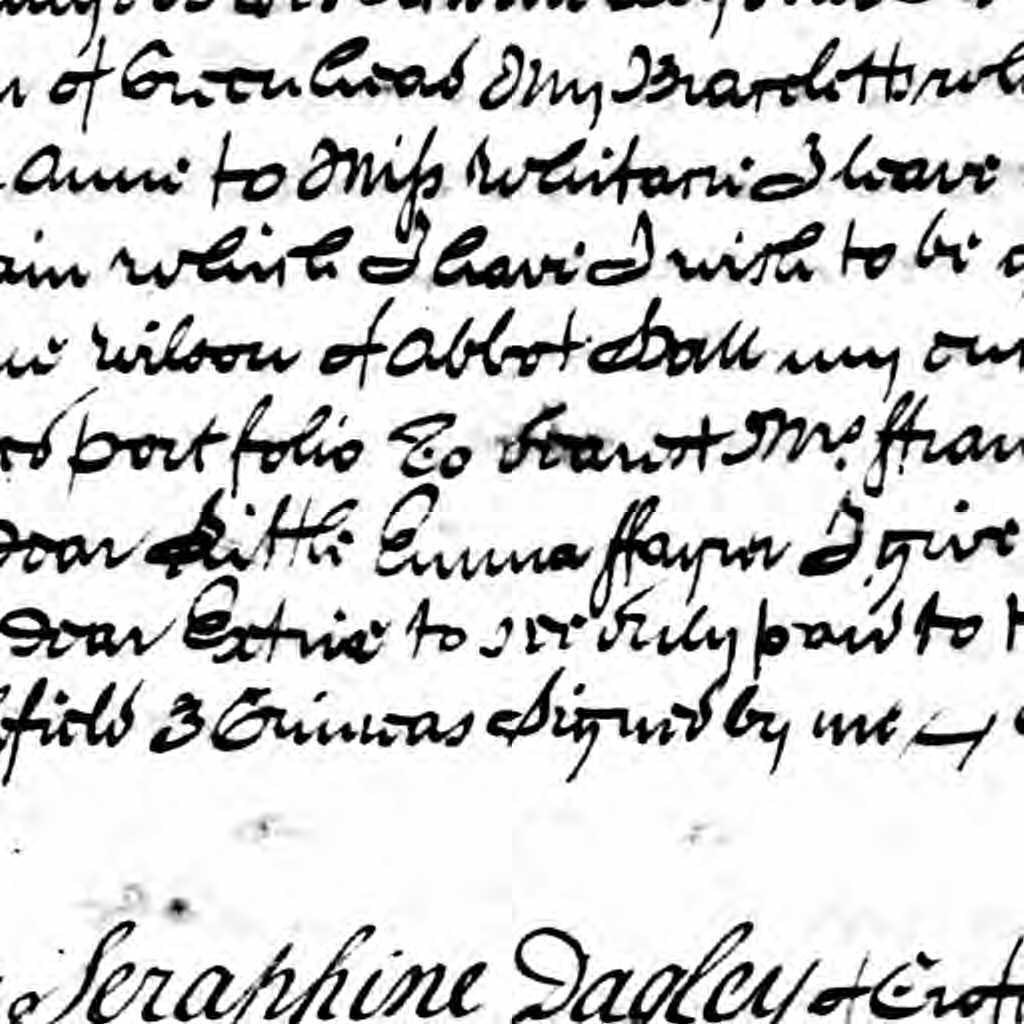 of Greenhead My Braceletts wh
Anne to Miss Whitacre I leave
ain which I have I wish to be
Wilson of Abbot Hall my
portfolio To Mrs. ffran
Dear Little Emma ffayrer I give
Dear Extrix to see duly paid to
field 3 Guineas Signed by me
Seraphine Dagley of Croft